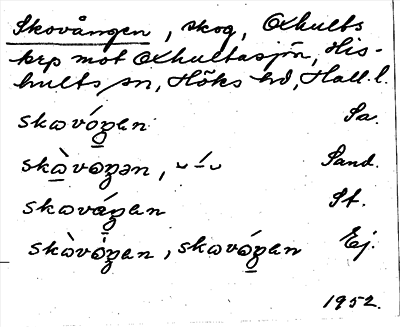 Skovången, skog, Oxhults
krp mot Oxhultasjön, His-
hults sn, Höks hd, Hall. l.
skωvóŋen Sa.
skὼvωŋen, ᴗ–́ᴗ Sand.
skωváŋen St.
skὼvóŋen, skωvóŋen Ej.
1952.